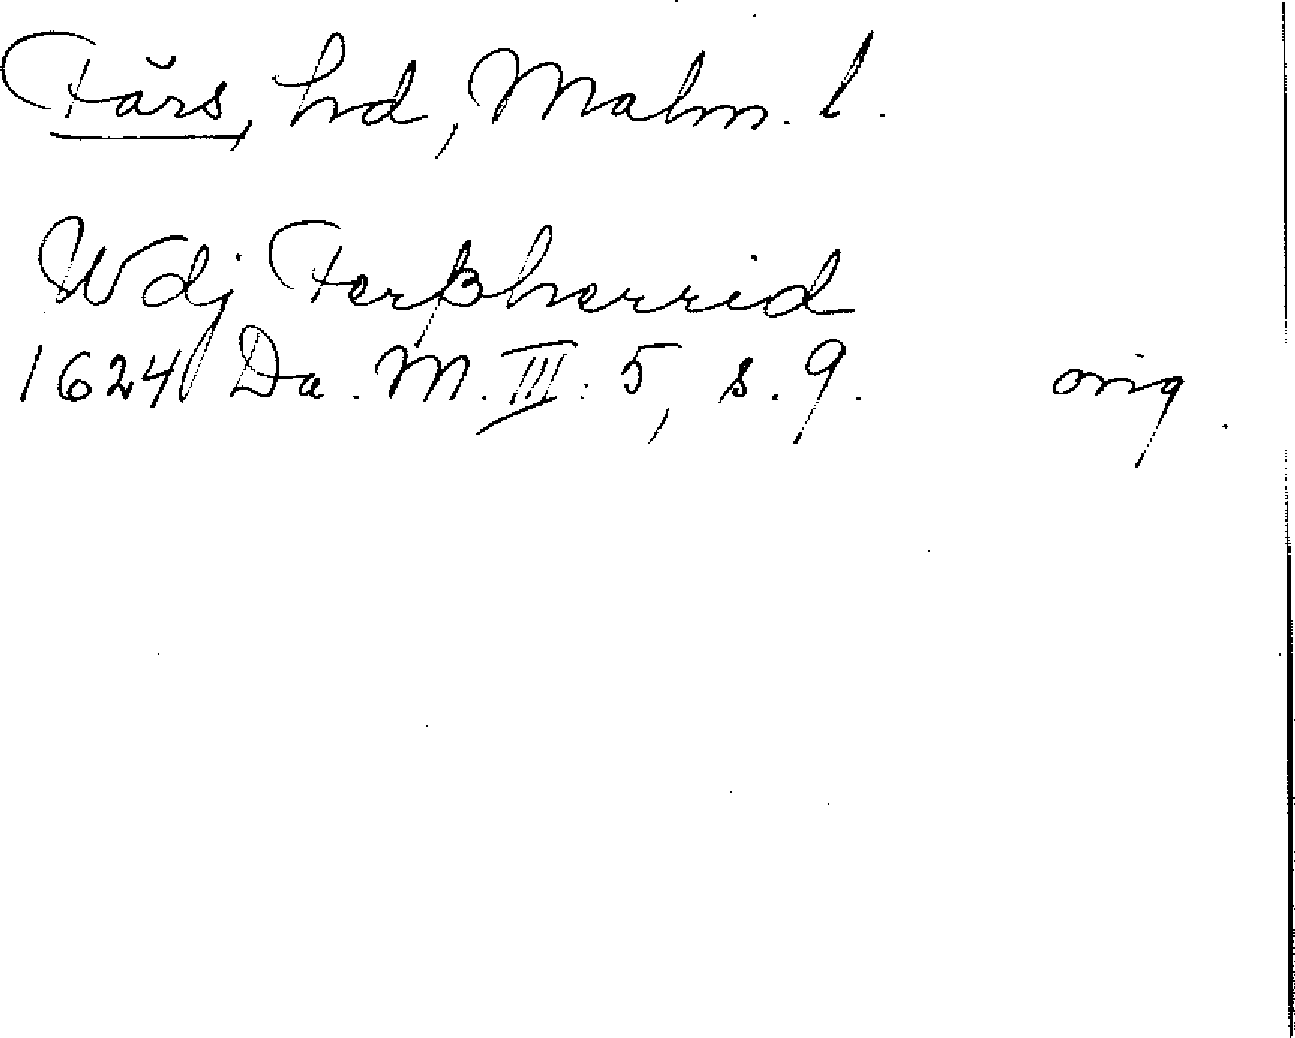 Färs, hd, Malm. l.
Wdj Ferßherrid
1624 Da. M. III: 5, s. 9. orig.